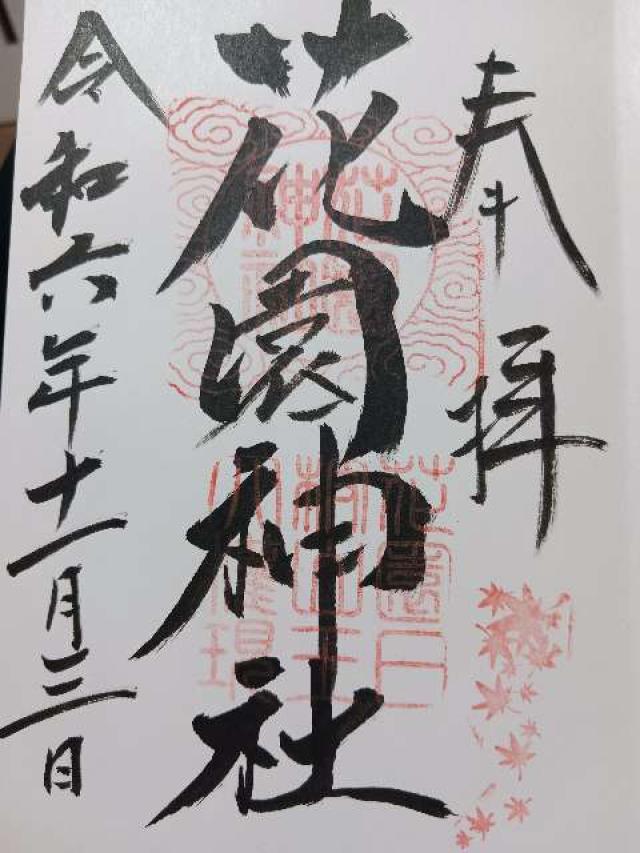 奉拝
花園神社
令和六年十一月三日